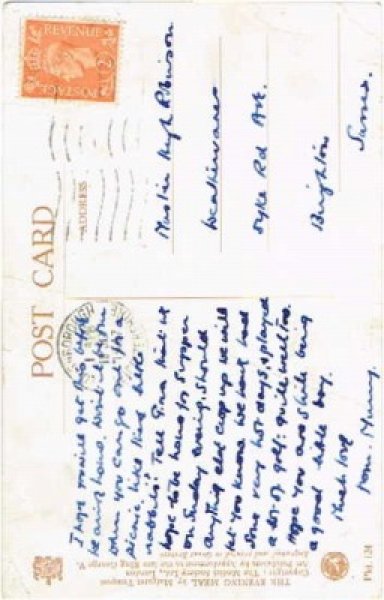 POST CARD
ADDRESS
REVENUE
POSTAGE
2½D
Master Hugh Robinson
Dyke Rd Ave.
Brighton
Sussex
I hope you will get this before
leaving home. Will
when you can go out for a
picnic like these little
rabbits! Tell Gina that we
hope to be home for supper
on Sunday evening. Should
anything else crop up we will
let you know. We have had
some very hot days, & played
a lot of golf: quite well too.
Hope you are still being
a good little boy.
Much love
from Mummy.
THE EVENING MEAL by Margaret Tempest
Copyright: The Medici Society Ltd., London
Art Publishers by Appointment to the late King George V.
Engraved and printed in Great Britain
PK. 124